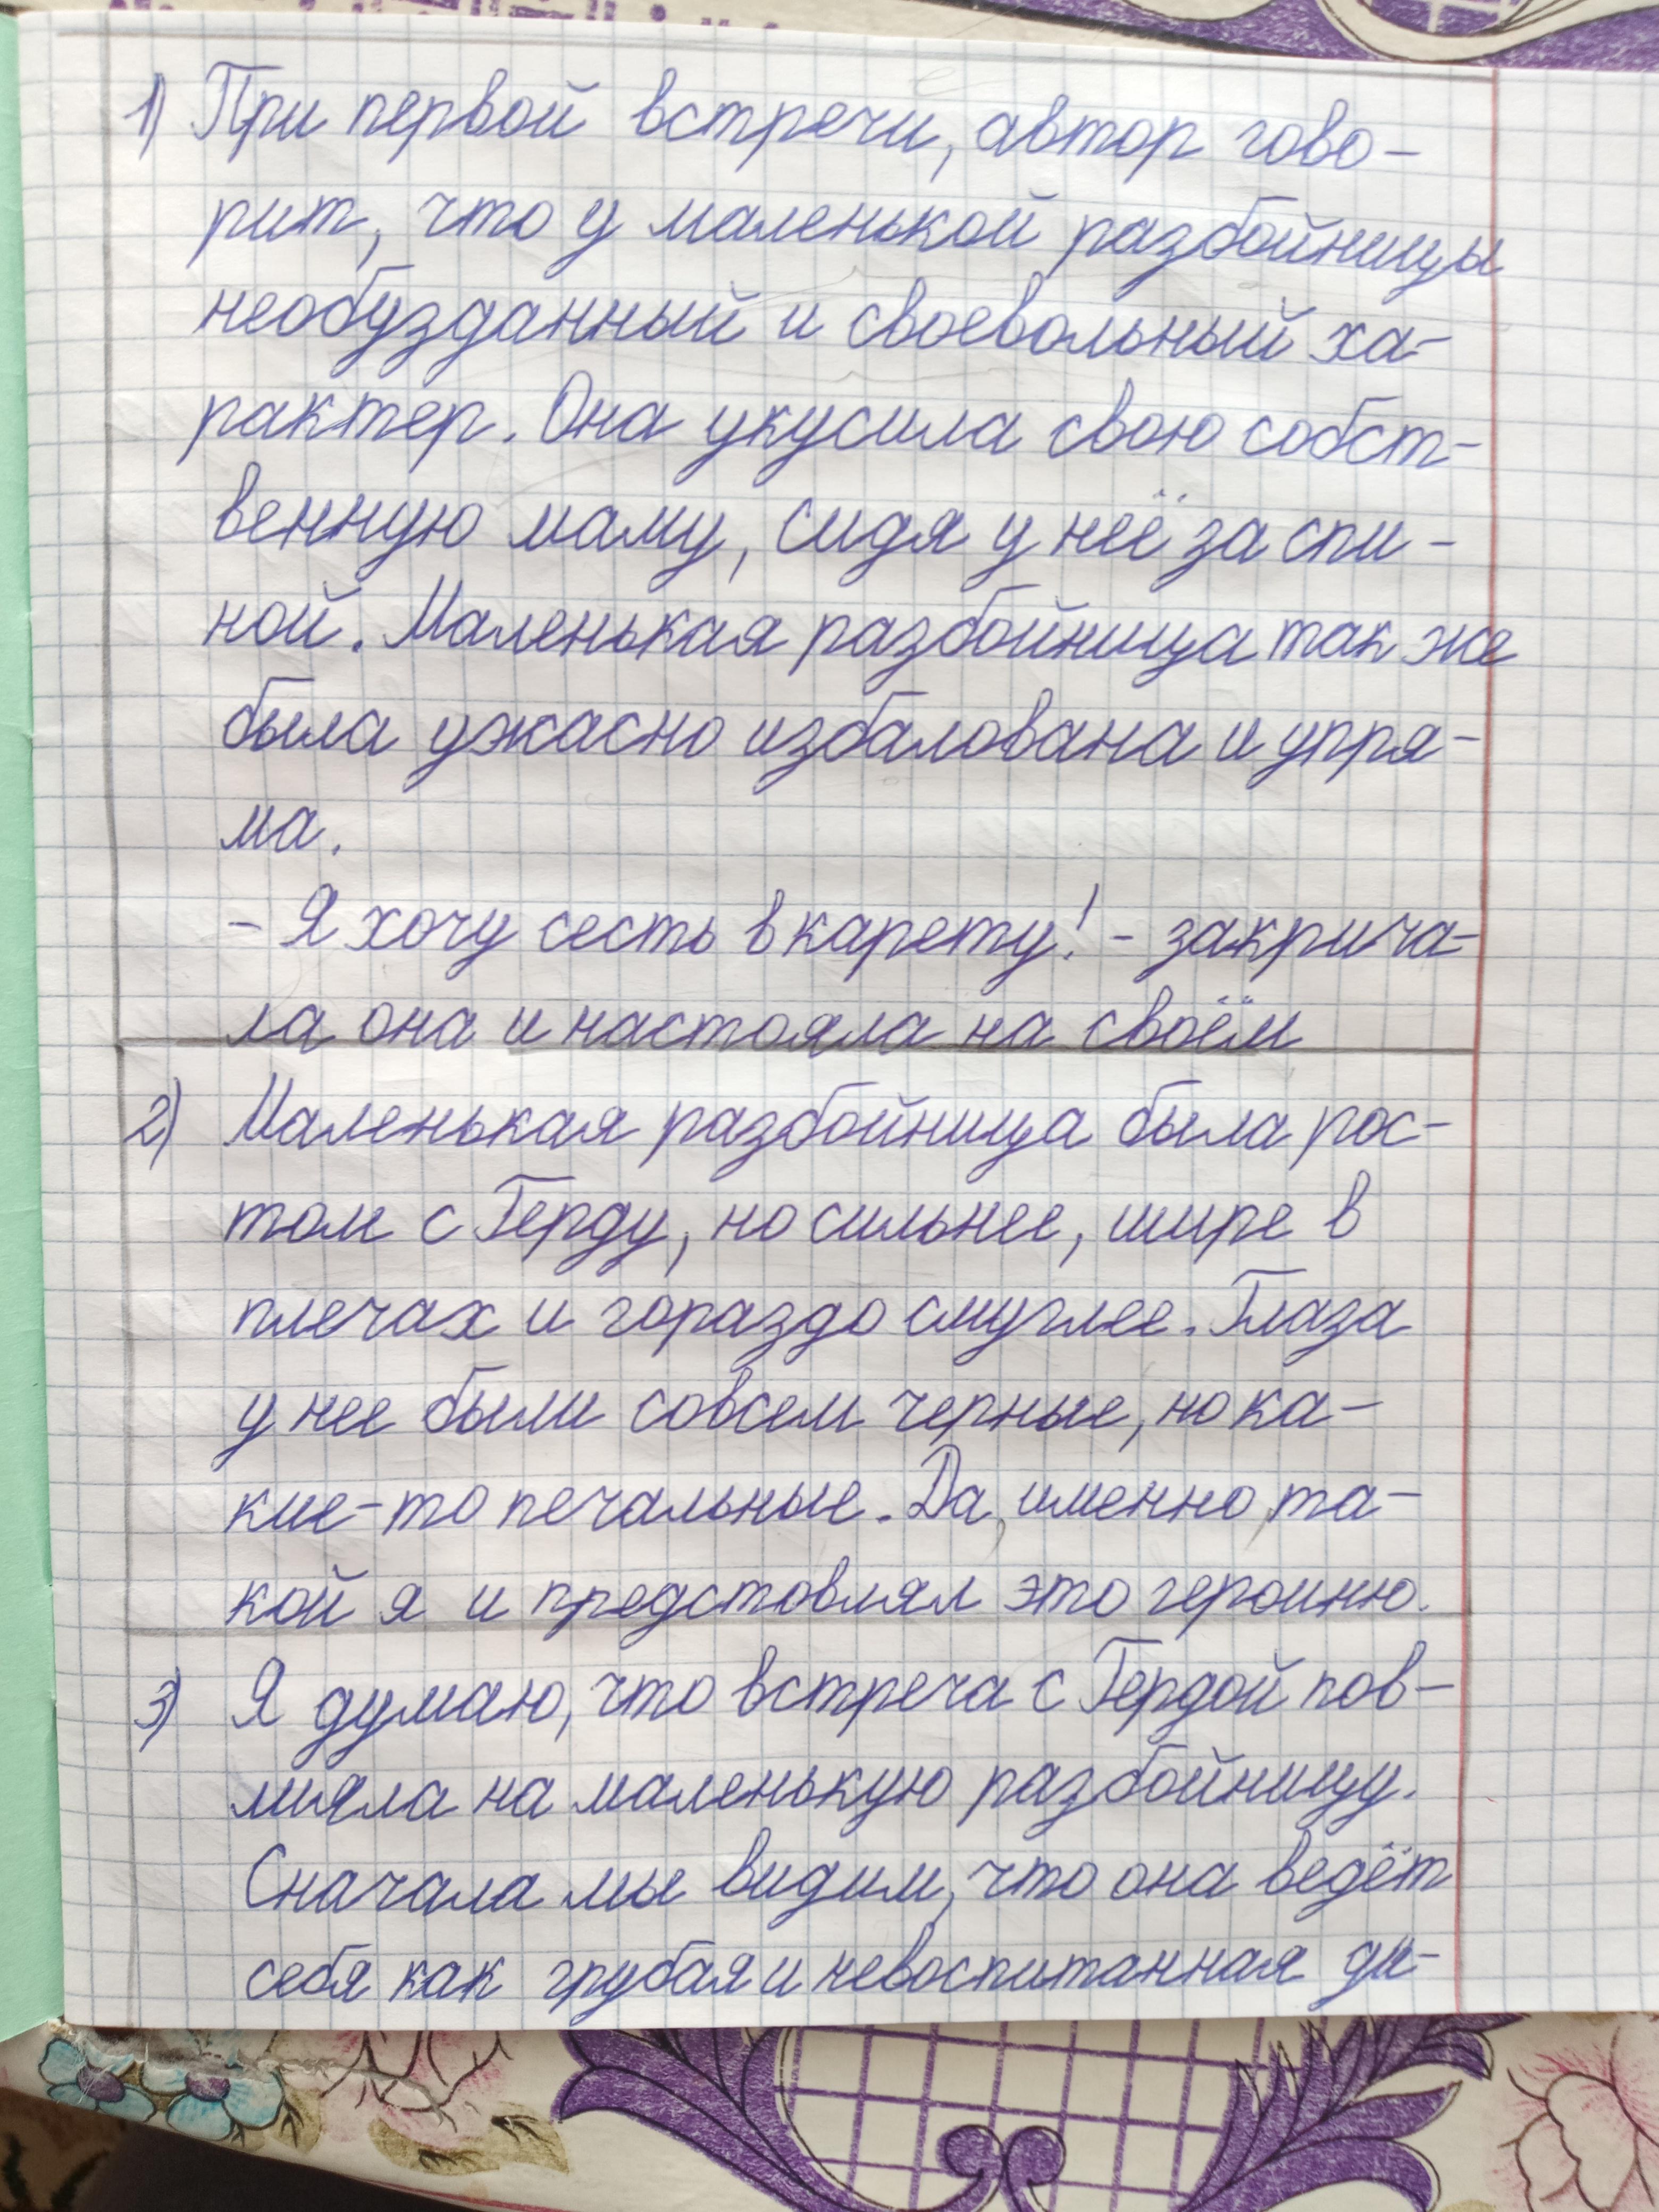 1) При первой встречи, автор гово-
рит, что у маленькой разбойницы
необузданный и своевольный ха-
рактер. Она укусила свою собст-
венную маму, сидя у неё за спи-
ной. Маленькая разбойница так же
была ужасно избалована и упря-
ма.
- Я хочу сесть в карету! - закрича-
ла она и настояла на своём
2) Маленькая разбойница была рос-
том с Герду, но сильнее, шире в
плечах и гораздо смуглее. Глаза
у нее были совсем черные, но ка-
кие-то печальные. Да, именно, та-
кой я и предстовлял это героиню.
3) Я думаю, что встреча с Гердой пов-
лияла на маленькую разбойницу.
Сначала мы видим, что она ведёт
себя как грубая и невоспитанная ди-